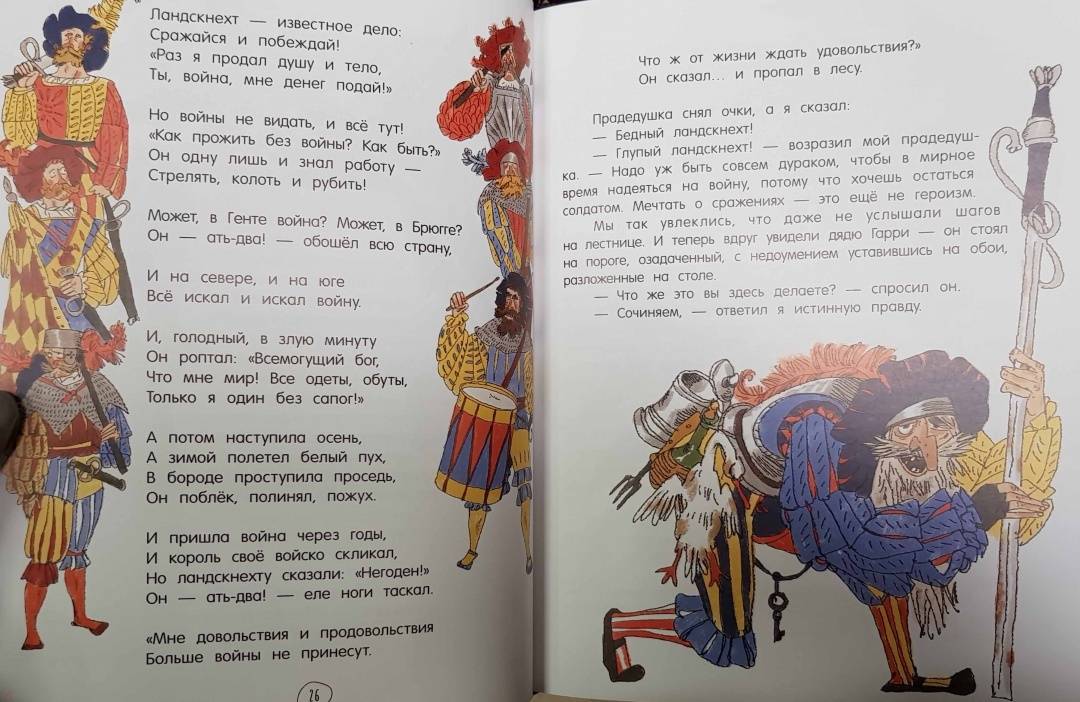 Ландскнехт — известное дело:
Сражайся и побеждай!
«Раз я продал душу и тело,
Ты, война, мне денег подай!»
Но войны не видать, и всё тут!
«Как прожить без войны? Как быть?»
Он одну лишь и знал работу —
Стрелять, колоть и рубить!
Может, в Генте война? Может, в Брюгге?
Он — ать-два! — обошёл всю страну,
И на севере, и на юге
Всё искал и искал войну.
И, голодный, в злую минуту
Он роптал: «Всемогущий бог,
Что мне мир! Все одеты, обуты,
Только я один без сапог!»
А потом наступила осень,
А зимой полетел белый пух,
В бороде проступила проседь,
Он поблёк, полинял, пожух.
И пришла война через годы,
И король своё войско скликал,
Но ландскнехту сказали: «Негоден!»
Он — ать-два! — еле ноги таскал.
«Мне довольствия и продовольствия
Больше войны не принесут.
26
Что ж от жизни ждать удовольствия?»
Он сказал... и пропал в лесу.
Прадедушка снял очки, а я сказал:
— Бедный ландскнехт!
— Глупый ландскнехт! — возразил мой прадедуш-
ка. — Надо уж быть совсем дураком, чтобы в мирное
время надеяться на войну, потому что хочешь остаться
солдатом. Мечтать о сражениях — это ещё не героизм.
Мы так увлеклись, что даже не услышали шагов
на лестнице. И теперь вдруг увидели дядю Гарри — он стоял
на пороге, озадаченный, с недоумением уставившись на обои,
разложенные на столе.
— Что же это вы здесь делаете? — спросил он.
— Сочиняем, — ответил я истинную правду.